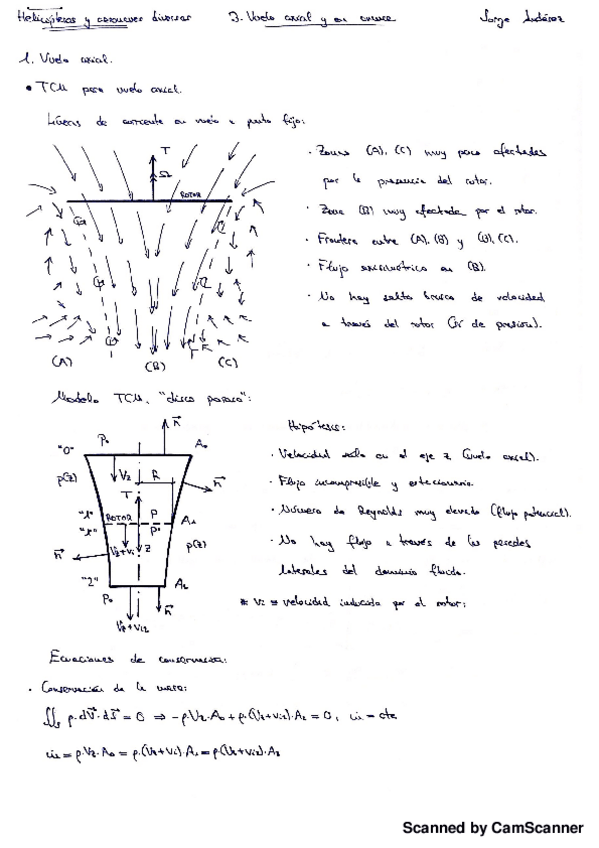 Helicópteros y aeronaves diversas 3. Vuelo axial y en avance Jorge
1. Vuelo axial.
• TCM para vuelo axial.
Líneas de corriente en vuelo a punto fijo:
T
Ω
ROTOR
(A) (B) (C)
· Zonas (A), (C) muy poco afectadas
por la presencia del rotor.
· Zona (B) muy afectada por el rotor.
· Frontera entre (A), (B) y (B), (C).
· Flujo axisimétrico en (B).
· No hay salto brusco de velocidad
a través del rotor (sí de presión).
Modelo TCM, "disco poroso":
n
"0" P₀ A₀
p(z) Vz R
T n
"1" ROTOR P A₁
"1'" P' p(z)
n Vz+Vi z
"2" A₂
P₀ n
Vz+Vi2
Hipótesis:
· Velocidad solo en el eje z (vuelo axial).
· Flujo incompresible y estacionario.
· Número de Reynolds muy elevado (flujo potencial).
· No hay flujo a través de las paredes
laterales del dominio fluido.
* Vi ≡ velocidad inducida por el rotor:
Ecuaciones de conservación:
· Conservación de la masa:
∬ ρ·dV·dS = 0 ⇒ -ρ·Vz·A₀+ρ·(Vz+Vi2)·A₂ = 0, ṁ = cte
ṁ = ρ·Vz·A₀ = ρ·(Vz+Vi)·A₁ = ρ(Vz+Vi2)·A₂
Scanned by CamScanner